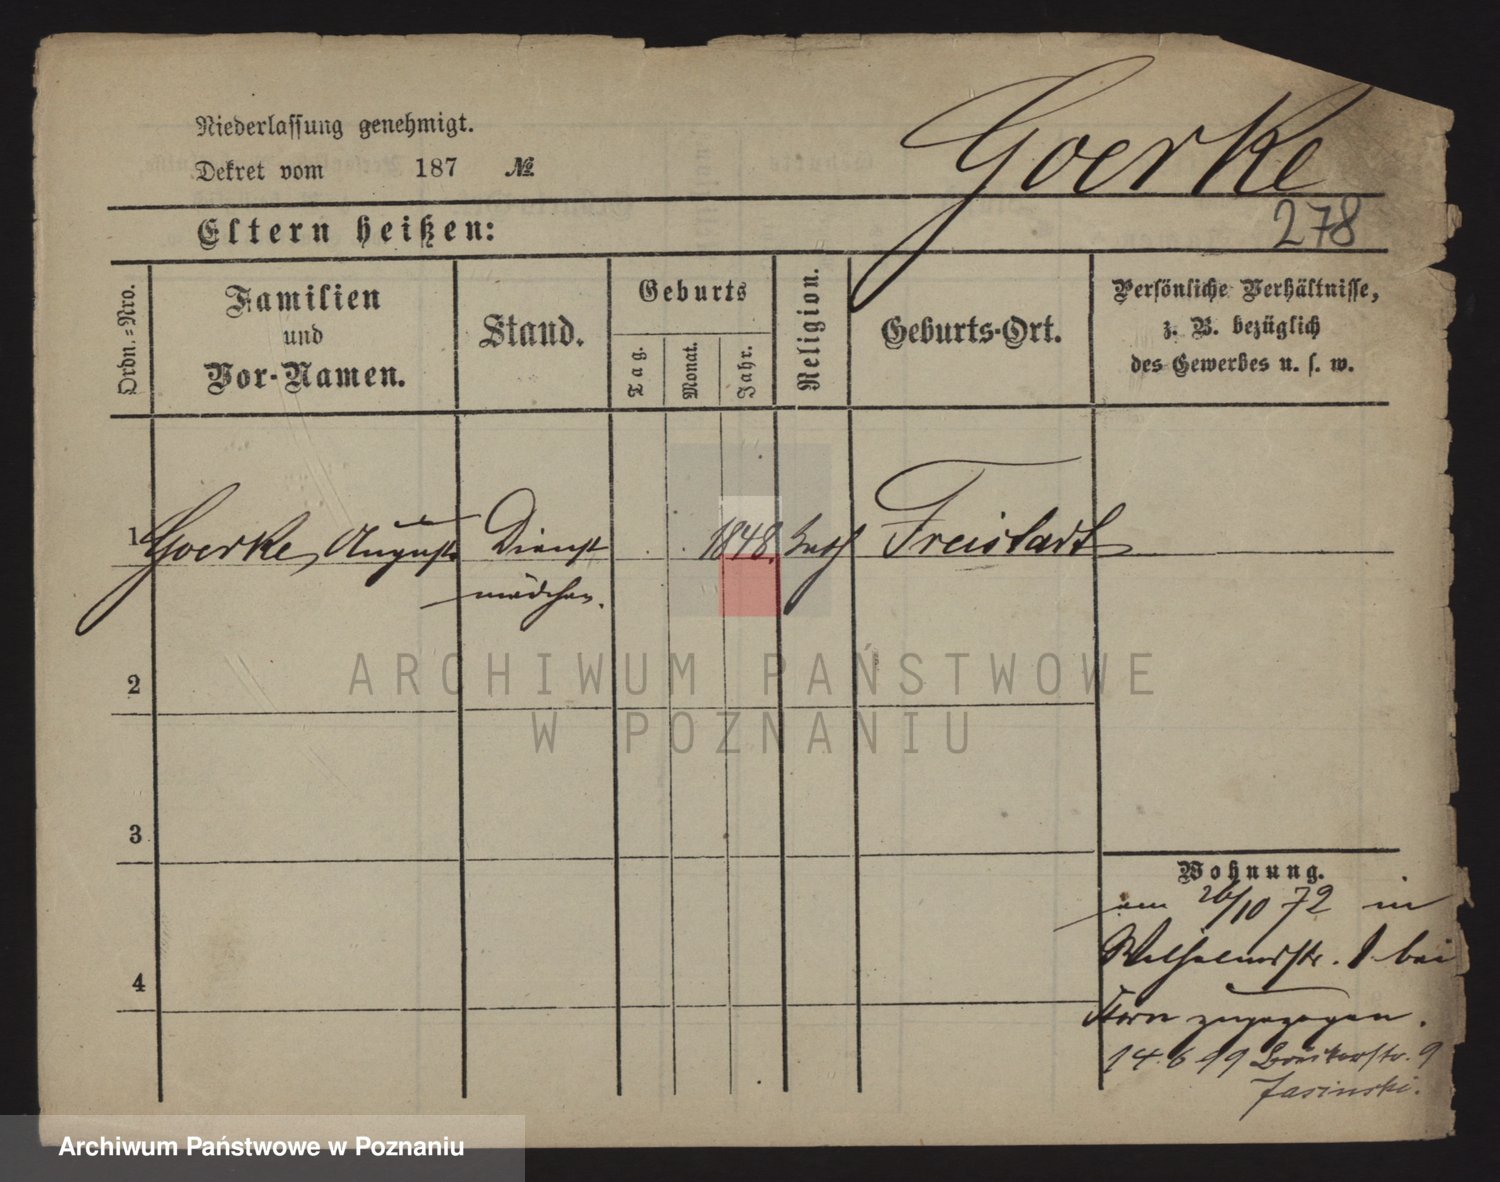 Niederlassung genehmigt.
Dekret vom 187 №
Goerke
278
Eltern heißen:
Ordn.=Nro.
Familien
und
Vor-Namen.
Stand.
Geburts
Tag.
Monat.
Jahr.
Religion.
Geburts-Ort.
Persönliche Verhältnisse,
z. B. bezüglich
des Gewerbes u. s. w.
1 Goerke, Auguste Dienst 1848. kath Freistadt
mädchen.
2
3
4
Wohnung.
am 26/10 72 in
Wilhelmsstr. 1 bei
zugezogen.
14.6 99 9
Jasinski.
ARCHIWUM PAŃSTWOWE
W POZNANIU
Archiwum Państwowe w Poznaniu